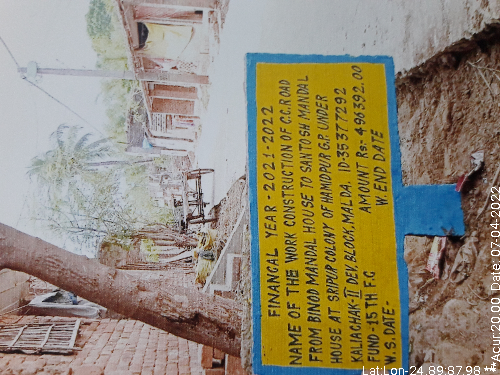 FINANCAL YEAR - 2021-2022
NAME OF THE WORK CONSTRUCTION OF C.C.ROAD
FROM BINOD MANDAL HOUSE TO SANTOSH MANDAL
HOUSE AT SRIPUR COLONY OF HAMIDPUR G.P. UNDER
KALIACHAK-II DEV. BLOCK, MALDA. ID-35377292
FUND-15TH F.G AMOUNT Rs:- 496392.00
W.S.DATE- W.END DATE
Lat:Lon-24.89:87.98 ***Acur:20.00 Date: 07-04-202